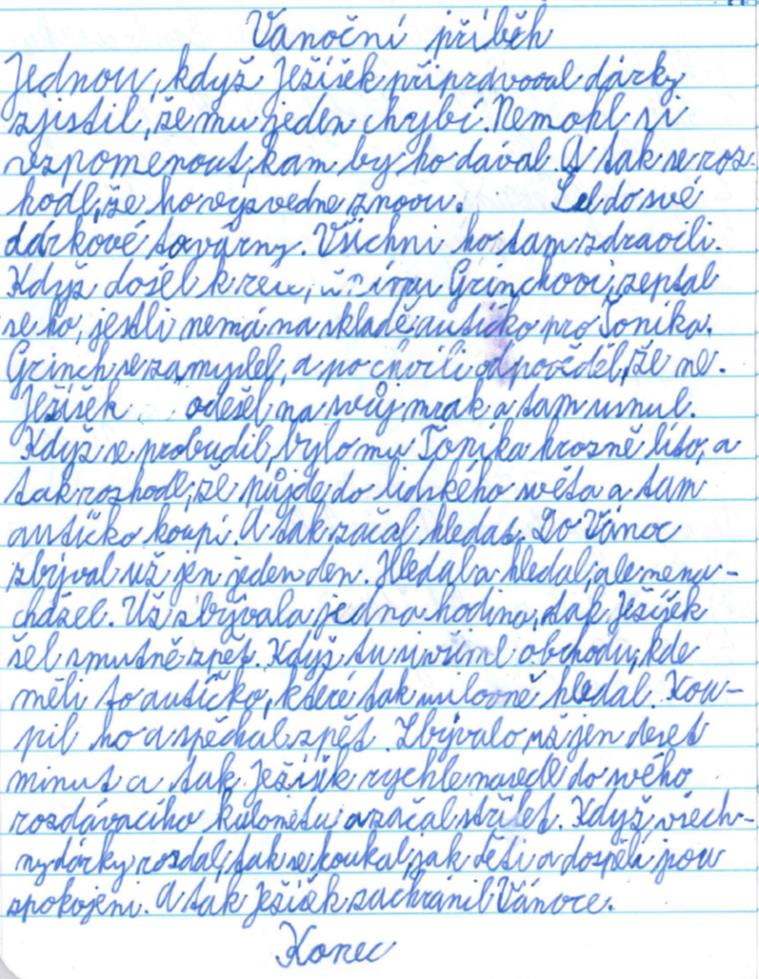 Vánoční příběh
Jednou, když Ježíšek připravoval dárky
zjistil, že mu jeden chybí. Nemohl si
vzpomenout, kam by ho dával. A tak se roz-
hodl, že ho vyzvedne znovu. Šel do své
dárkové továrny. Všichni ho tam zdravili.
Když došel k Grinchovi, zeptal
se ho, jestli nemá na skladě autíčko pro Toníka.
Grinch se zamyslel, a po chvíli odpověděl, že ne.
Ježíšek odešel na svůj mrak a tam usnul.
Když se probudil, bylo mu Toníka hrozně líto, a
tak rozhodl, že půjde do lidského světa a tam
autíčko koupí. A tak začal hledat. Do Vánoc
zbýval už jen jeden den. Hledal a hledal, ale nena-
cházel. Už zbývala jedna hodina, tak Ježíšek
šel smutně zpět. Když tu si všiml obchodu, kde
měli to autíčko, které tak usilovně hledal. Kou-
pil ho a spěchal zpět. Zbývalo už jen deset
minut a tak Ježíšek rychle do svého
rozdávacího kulometu a začal střílet. Když, všech-
ny dárky rozdal, tak se koukal, jak děti a dospělí jsou
spokojeni. A tak Ježíšek zachránil Vánoce.
Konec